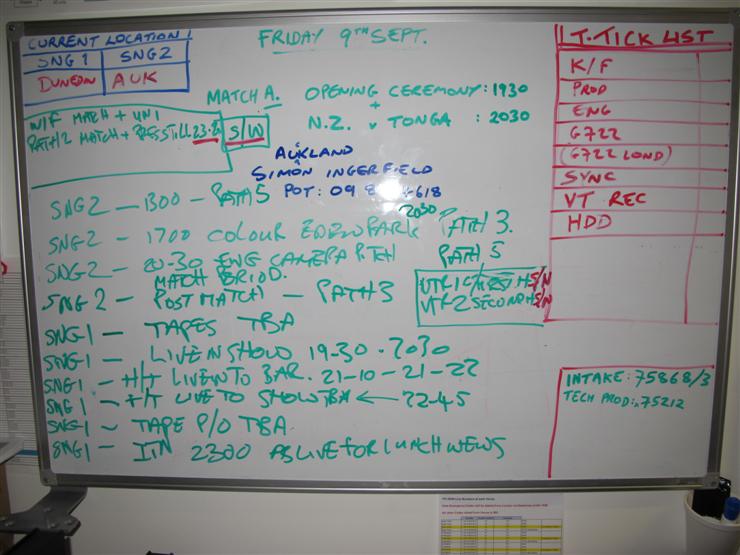 CURRENT LOCATION
SNG 1 SNG 2
DUNEDN AUK
FRIDAY 9TH SEPT.
MATCH A. OPENING CEREMONY: 1930
+
N.Z. v TONGA : 2030
W/F MATCH + UNI
PATH 2 MATCH + PRESS TILL 23.
S/W
AUKLAND
SIMON INGERFIELD
POT: 09 8 618
SNG2 — 1300 — PATH 5
2030
SNG2 — 1700 COLOUR EDEN PARK PATH 3.
SNG2 — 20-30 ENG CAMERA PITCH PATH 5
MATCH PERIOD.
SNG2 — POST MATCH — PATH 3
VTR 1 H S/N
VTR 2 SECOND H S/N
SNG-1 — TAPES TBA
SNG1 — LIVE IN SHOW 19-30 - 2030
SNG1 — H/T LIVE INTO BAR. 21-10 - 21-22
SNG1 — F/T LIVE TO SHOW TBA ← 22-45
SNG-1 — TAPE P/O TBA
SNG1 — ITN 2300 AS LIVE FOR LUNCH NEWS
T-TICK LIST
K/F
PROD
ENG
G722
(G722 LOND)
SYNC
VT REC
HDD
INTAKE: 75868/3
TECH PROD: 75212